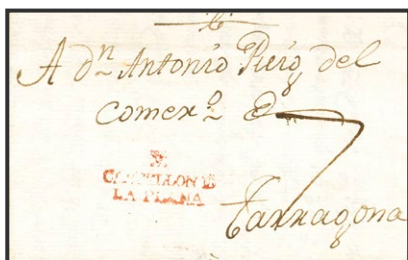 A dn Antonio Puig del
comerᵒ &
CASTELLON DE
LA PLANA
Tarragona